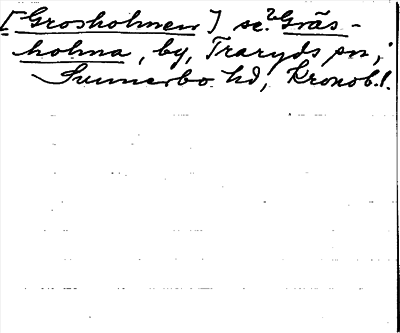 [Grosholmen] se ²Gräs-
holma, by, Traryds sn,
Sunnerbo hd, Kronob.l.